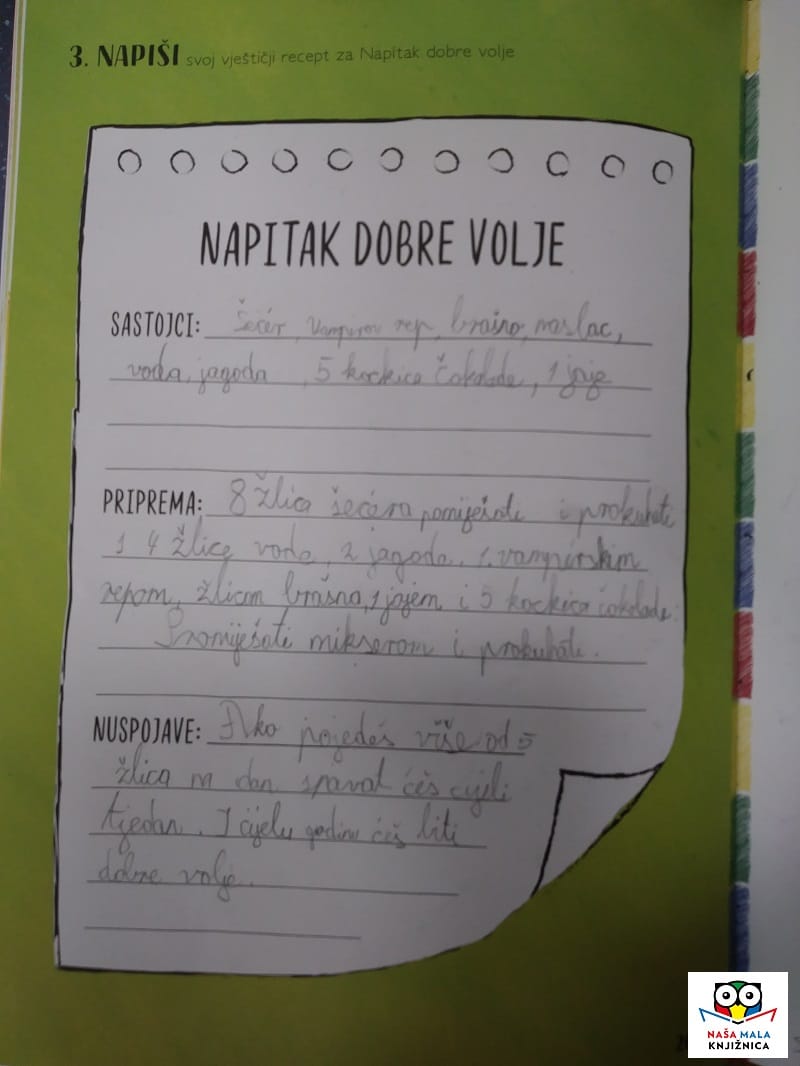 3. NAPIŠI svoj vještičji recept za Napitak dobre volje
NAPITAK DOBRE VOLJE
SASTOJCI: Šećer, vampirov rep, brašno, maslac,
voda, jagoda, 5 kockica čokolade, 1 jaje
PRIPREMA: 8 žlica šećera pomiješati i prokuhati
s 4 žlice vode, 2 jagode, 1. vampirskim
repom, žlicom brašna, 1 jajem i 5 kockica čokolade.
Promiješati mikserom i prokuhati.
NUSPOJAVE: Ako pojedeš više od 5
žlica na dan spavat ćeš cijeli
tjedan. I cijelu godinu ćeš biti
dobre volje.
NAŠA MALA
KNJIŽNICA